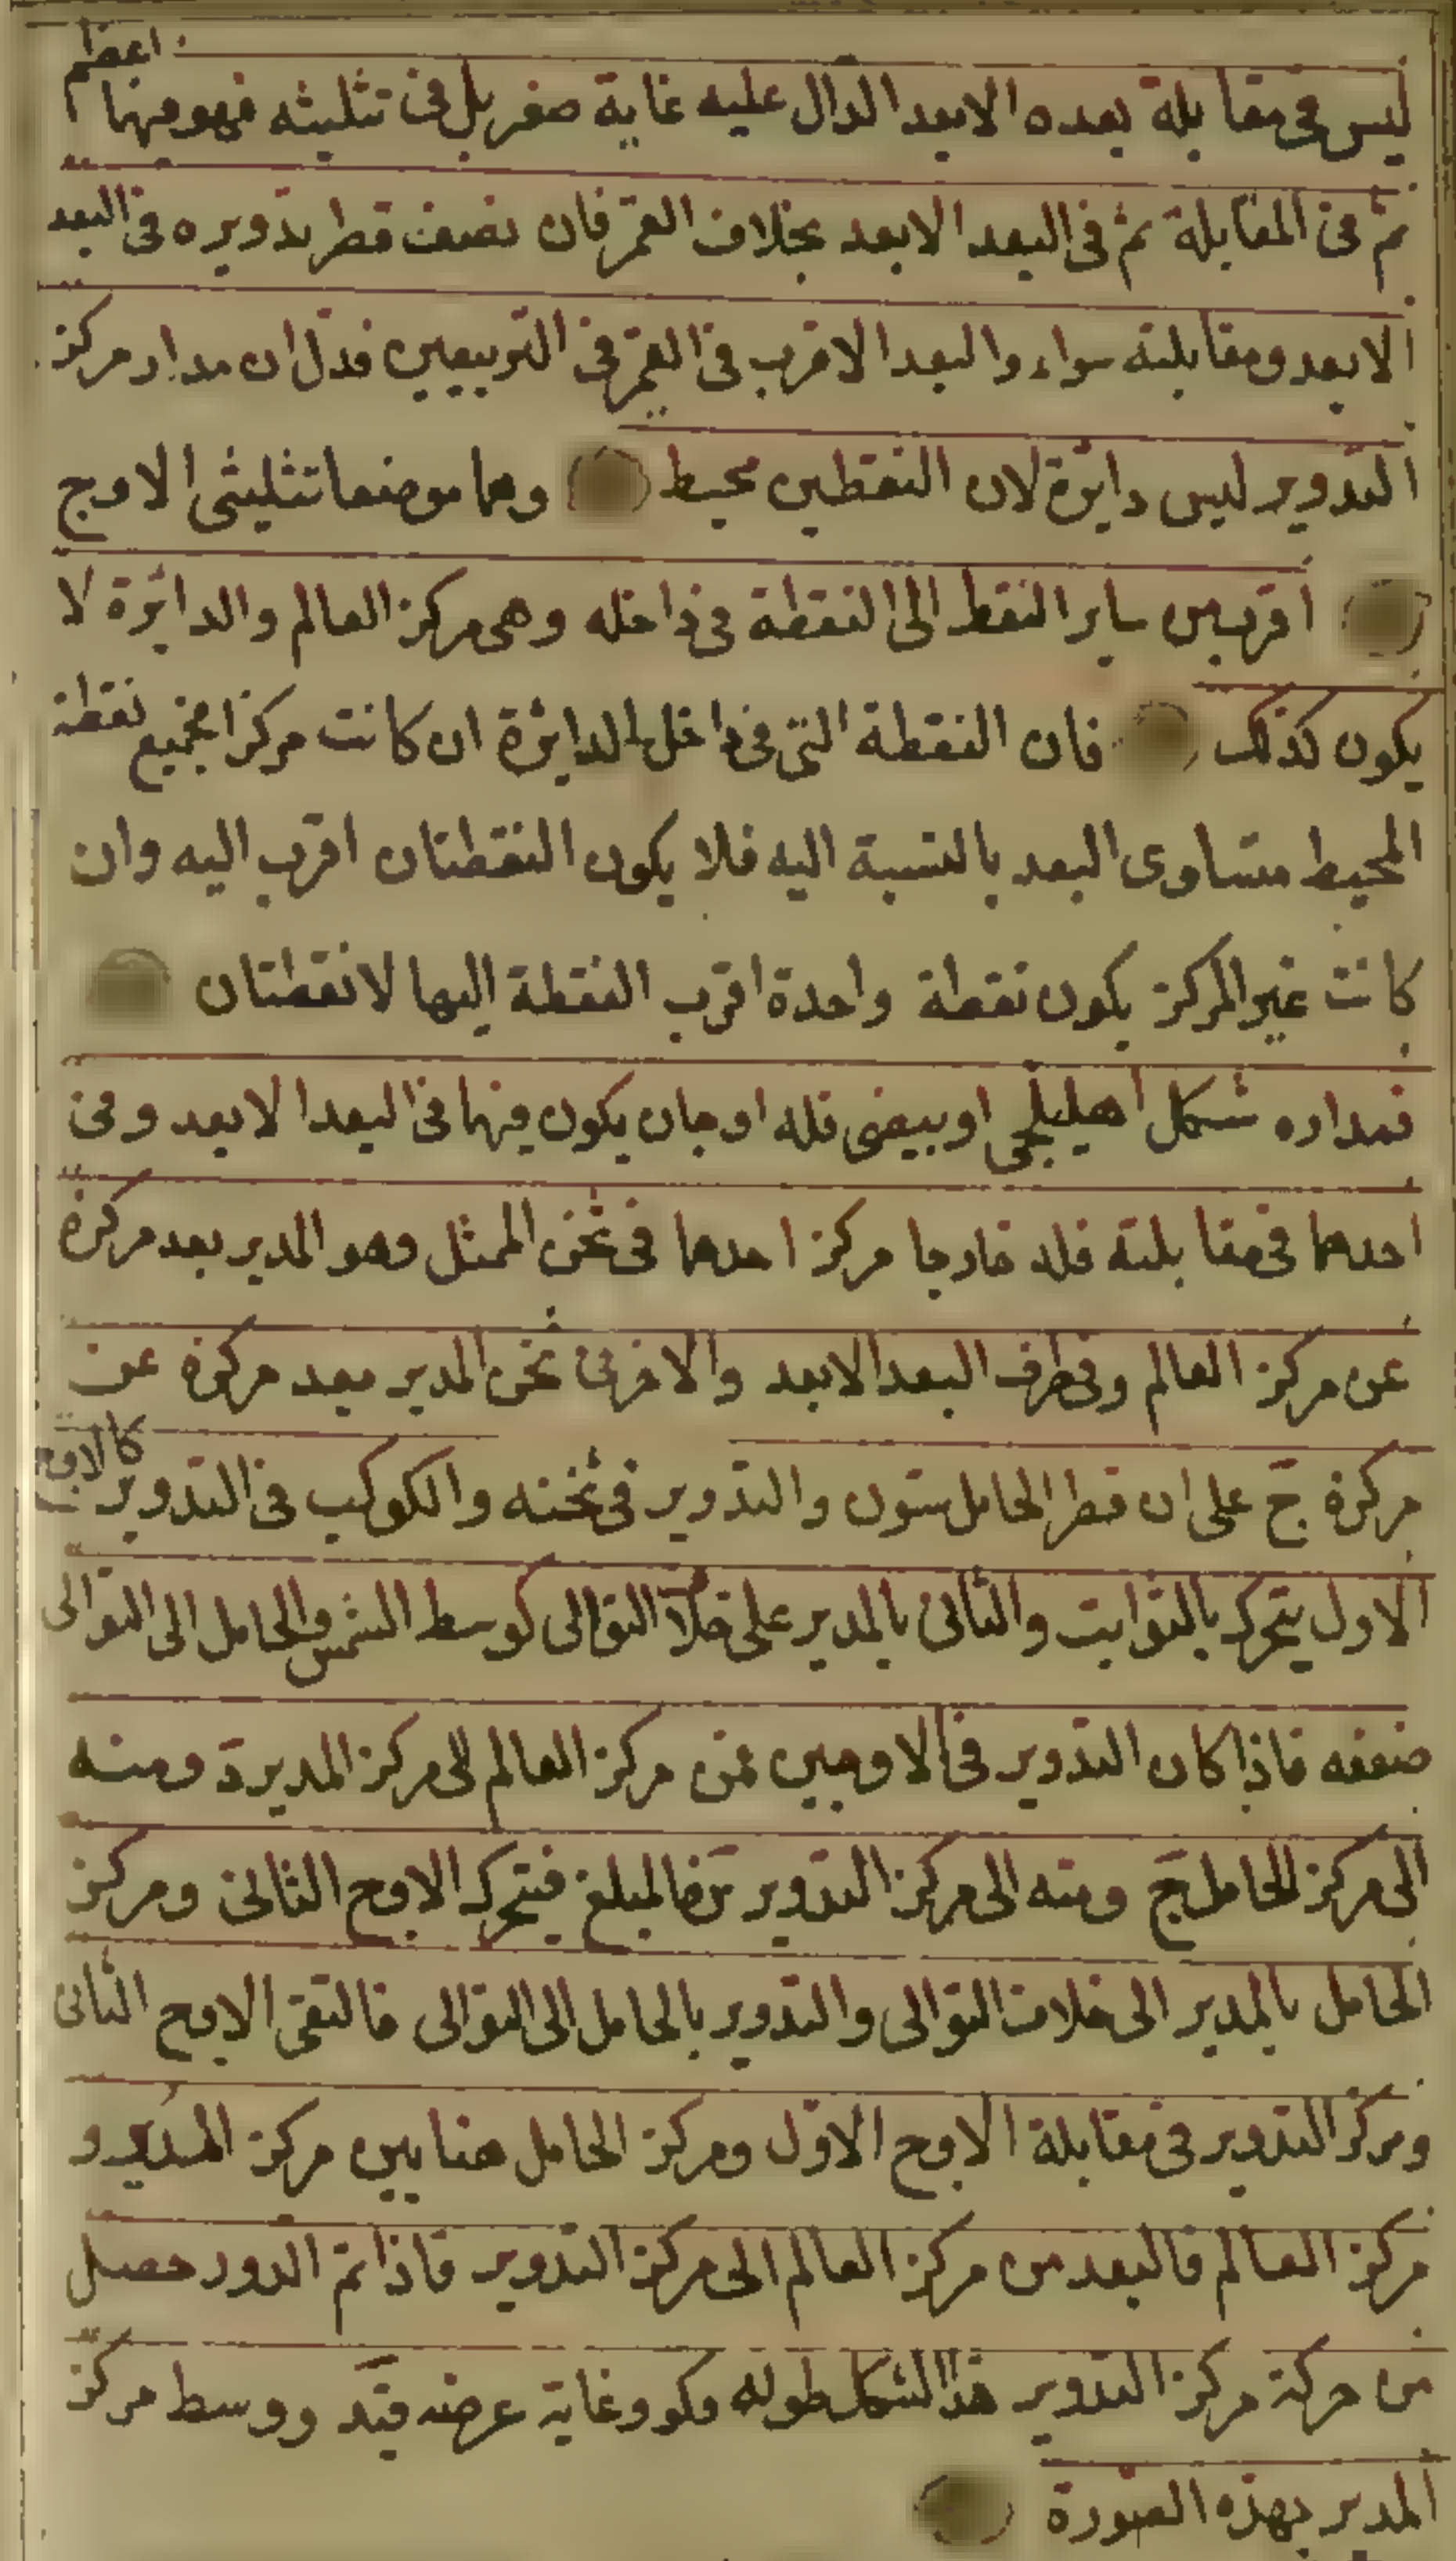 ليس فى مقابلة بعده الابعد الدال عليه غاية صغر بل فى تثليثه فهو فيها اعظم
ثم فى المقابلة ثم فى البعد الابعد بخلاف القمر فان نصف قطر تدويره فى البعد
الابعد ومقابلته سواء والبعد الاقرب فى القمر فى التربيعين فدل ان مدار مركز
التدوير ليس دائرة لان النقطين محيط وهما موضعا تثليثى الاوج
اقرب من ساير النقط الى النقطة فى داخله وهى مركز العالم والدائرة لا
يكون كذلك فان النقطة التى فى داخل الدائرة ان كانت مركزا فجميع نقطة
المحيط متساوى البعد بالنسبة اليه فلا يكون النقطتان اقرب اليه وان
كانت غير المركز يكون نقطة واحدة اقرب النقطة اليها لا نقطتان
فمداره شكل اهليلجى او بيضى فله اوجان يكون فيها فى البعد الابعد وفى
احدهما فى مقابلته فله خارجا مركز احدهما فى ثخن الممثل وهو المدير بعد مركزه
عن مركز العالم وفى طرف البعد الابعد والاخر فى ثخن المدير بعد مركزه عن
مركزه ج على ان قطر الحامل ستون والتدوير فى ثخنه والكوكب فى التدوير كالاوج
الاول يتحرك بالثوابت والثانى بالمدير على خلاف التوالى كوسط الشمس والحامل الى التوالى
ضعفه فاذا كان التدوير فى الاوجين فمن مركز العالم الى مركز المدير ة ومنه
الى مركز الحامل ج ومنه الى مركز التدوير فالمبلغ فيتحرك الاوج الثانى ومركز
الحامل بالمدير الى خلاف التوالى والتدوير بالحامل الى التوالى فالتقى الاوج الثانى
ومركز التدوير فى مقابلة الاوج الاول ومركز الحامل هنا بين مركز المدير و
مركز العالم فالبعد من مركز العالم الى مركز التدوير فاذا تم الدور حصل
من حركة مركز التدوير هذا الشكل طوله وغاية عرضه ووسط مركز
المدير بهذه الصورة